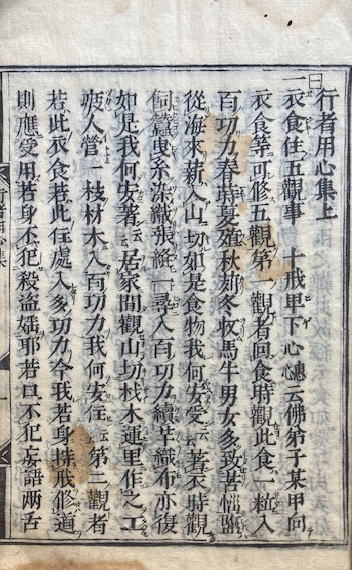 行者用心集上
一衣食住五觀事 十戒甲下心憓云佛弟子某甲向
衣食等可修五觀第一觀者回食時觀此食一粒入
百功力春蒔夏殖秋苅冬收馬牛男女多致苦惱鹽
從海來新入山切如是食物我何安受云著衣時觀
飼蠶曳糸染織張絁一尋入百功力續苧織布亦復
如是我何安著云居家間觀山切杙木運里作之工
疲人營一枝材木入百功力我何安住云第二觀者
若此衣食若此住處入多功力今我若身持戒修道
則應受用若身不犯殺盜婬耶若口不犯妄語兩舌
行者用心集